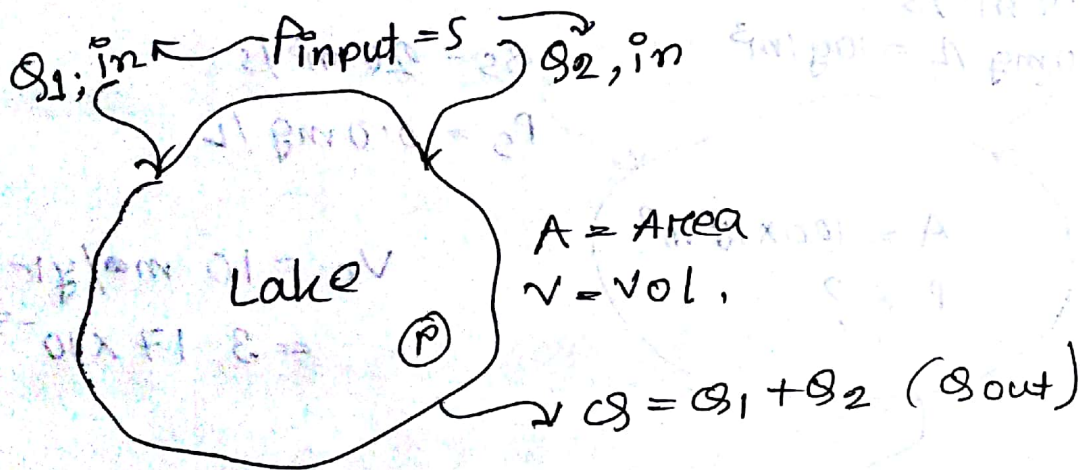 Q1, in Pinput = S Q2, in
Lake
P
A = Area
V = Vol.
Q = Q1 + Q2 (Qout)